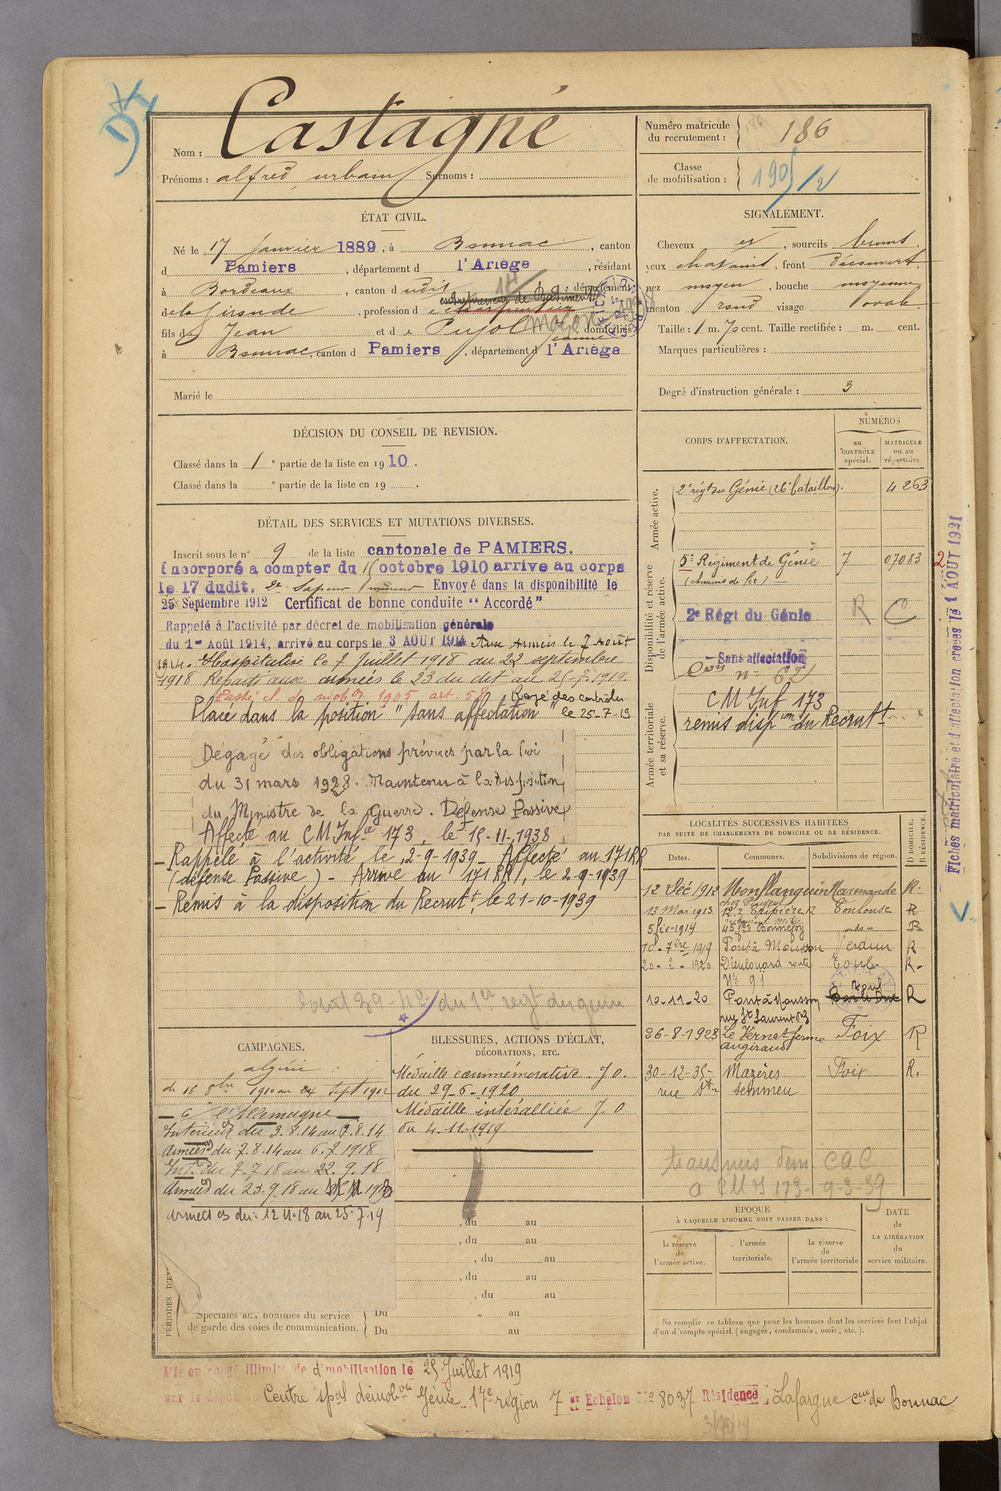 Castagné
Nom :
Prénoms : alfred, urbain Surnoms :
Numéro matricule
du recrutement : 186
Classe
de mobilisation : 1905/2
ÉTAT CIVIL.
Né le 17 janvier 1889, à Bonnac, canton
d Pamiers, département d l'Ariège, résidant
à Bordeaux, canton d udit, département
de la Gironde, profession d
maçon
fils de Jean et d e Pujol Jeanne, domiciliés
à Bonnac, canton d Pamiers, département d l'Ariège
Marié le
SIGNALEMENT.
Cheveux et, sourcils bruns
yeux chatains, front découvert
nez moyen, bouche moyenne
menton rond visage ovale
Taille : 1 m. 70 cent. Taille rectifiée : m. cent.
Marques particulières :
Degré d'instruction générale : 3
DÉCISION DU CONSEIL DE REVISION.
Classé dans la 1e partie de la liste en 1910.
Classé dans la e partie de la liste en 19 .
DÉTAIL DES SERVICES ET MUTATIONS DIVERSES.
Inscrit sous le n° 9 de la liste cantonale de PAMIERS.
Incorporé a compter du 15 octobre 1910 arrive au corps
le 17 dudit. 2e Sapeur mineur Envoyé dans la disponibilité le
25 Septembre 1912 Certificat de bonne conduite "Accordé"
Rappelé à l'activité par décret de mobilisation générale
du 1er Août 1914, arrivé au corps le 3 AOUT 1914 Aux Armées le 7 Août
1914. Hospitalisé le 7 juillet 1918 au 22 septembre
1918 Reparti aux armées le 23 du dit au 25-7-1919.
Passé cl. de mob 1905 art. 58 Rayé des contrôles
Placé dans la position "sans affectation" le 25-7-19
Dégagé des obligations prévues par la loi
du 31 mars 1928. Maintenu à la disposition
du Ministre de la Guerre. Défense Passive
Affecté au CM Infie 173, le 15-11-1938
– Rappelé à l'activité le 2-9-1939 – Affecté au 171 RR
(défense Passive) – Arrivé au 171 RR, le 2-9-1939
– Remis à la disposition du Recrut, le 21-10-1939
du 1er regt du genie
CORPS D'AFFECTATION.
NUMÉROS
au CONTRÔLE spécial.
MATRICULE ou au répertoire.
Armée active.
2e régt du Génie (26e bataillon). 4 263
Disponibilité et réserve de l'armée active.
5e Régiment de Génie 7 07083
(chemins de fer)
2e Régt du Génie R C
Sans affectation
Armée territoriale et sa réserve.
CM Inf 173
remis dispon du Recrutt
LOCALITÉS SUCCESSIVES HABITÉES
PAR SUITE DE CHANGEMENTS DE DOMICILE OU DE RÉSIDENCE.
D DOMICILE.
R RÉSIDENCE.
Dates. Communes. Subdivisions de région.
12 Déc 1912 Monflanquin Marmande R.
13 Mai 1913 Toulouse R
5 fév-1914 Bonnefoy R
10-7bre 1919 Pont à Mousson Verdun R
20-2-1920 Dieulouard route Toul R.
N° 91
10-11-20 Pont à Mousson Toul Bar le Duc R
rue St Laurent
26-8-1923 Le Vernet ferme Foix R
angiraud
30-12-35- Mazères Foix R.
transmis dem CAC
à CMI 173- 9-3-39
CAMPAGNES.
algérie
du 15 8bre 1910 au 24 sept 1912
c/ l'Allemagne
Intérieur du 3.8.14 au 6.8.14
Armées du 7.8.14 au 6.7.1918
Int. du 7.7.18 au 22.9.18
Armées du 23.9.18 au
Armées du : 12.11.18 au 25.7.19
BLESSURES, ACTIONS D'ÉCLAT,
DÉCORATIONS, ETC.
Médaille commémorative J.O.
du 29-6-1920
Médaille interalliée J.O
du 4-11-1919
, du au
, du au
, du au
, du au
, du au
Spéciales aux hommes du service
de garde des voies de communication.
Du au
Du au
ÉPOQUE
À LAQUELLE L'HOMME DOIT PASSER DANS :
la réserve de l'armée active.
l'armée territoriale.
la réserve de l'armée territoriale
DATE de LA LIBÉRATION du service militaire.
Ne remplir ce tableau que pour les hommes dont les services font l'objet
d'un décompte spécial (engagés, condamnés, omis, etc.).
Mis en congé illimité de démobilisation le 25 Juillet 1919
par le dépôt Centre spal démobon Génie 17e région 7 er Echelon N° 8037 Résidence Lafargue cne de Bonnac
Fiches matriculaire et d'affectation créées le 1 AOUT 1921